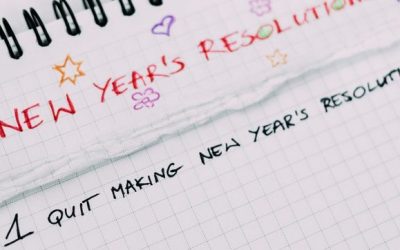 NEW YEAR'S RESOLUTION
1 QUIT MAKING NEW YEAR'S RESOLUTI